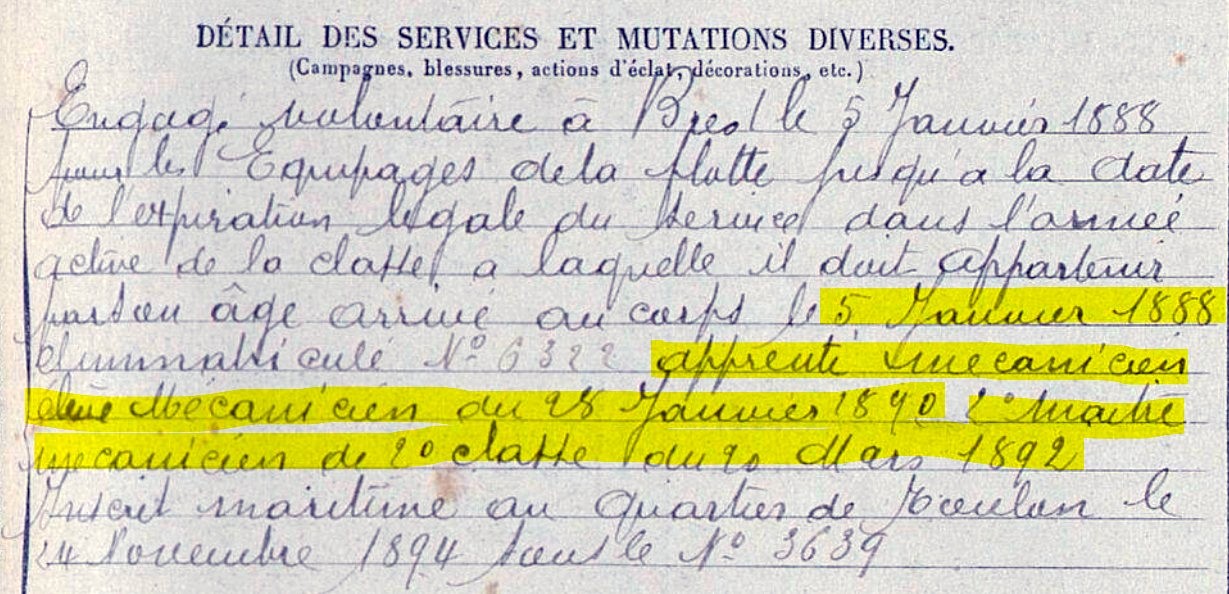 DÉTAIL DES SERVICES ET MUTATIONS DIVERSES.
(Campagnes, blessures, actions d'éclat, décorations, etc.)
Engagé volontaire à Brest le 5 Janvier 1888
pour les Equipages de la flotte jusqu'a la date
de l'expiration légale du service dans l'armée
active de la classe a laquelle il doit appartenir
par son âge arrivé au corps le 5 Janvier 1888
et immatriculé N° 6322 apprenti mécanicien
élève Mécanicien du 28 Janvier 1890 2e Maitre
mécanicien de 2e classe du 20 Mars 1892
Inscrit maritime au quartier de Toulon le
24 Novembre 1894 sous le N° 3639